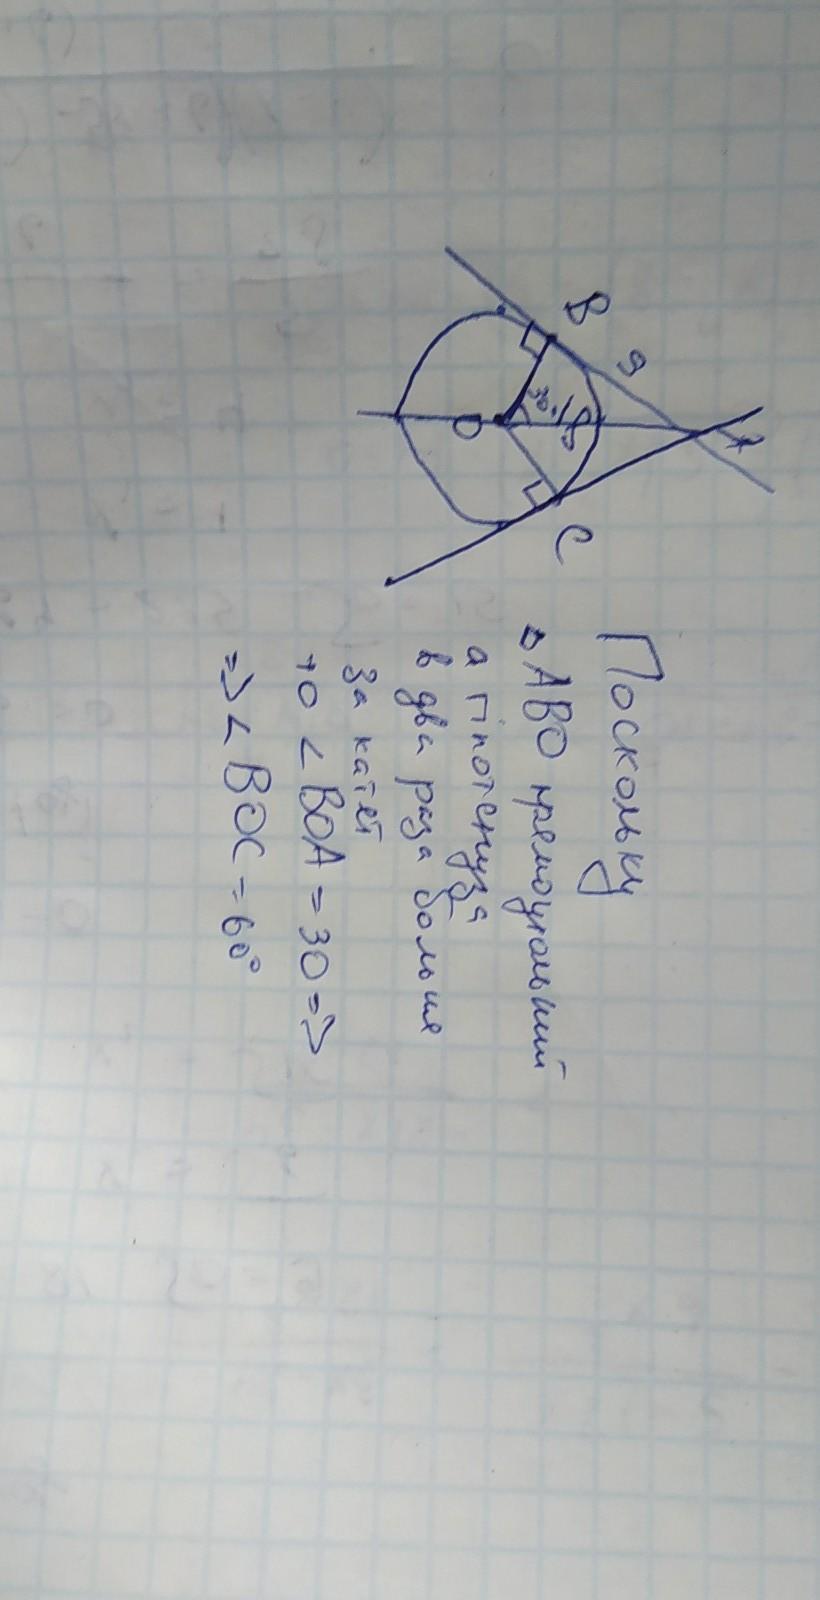 B
9
A
30°
18
O
C
Поскольку
▵ABO прямоугольный
а гіпотенуза
в два раза больше
за катет
то ∠BOA = 30 =>
=> ∠BOC = 60°